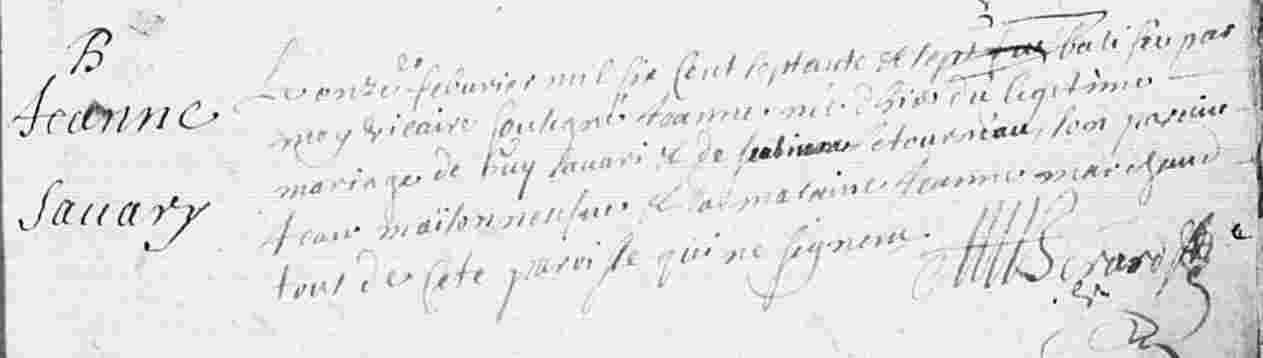 B
Jeanne
Savary
Le onze febvrier mil six cent septante & sept batisée par
moy vicaire soubsigné Jeanne née d'hier du legitime
mariage de Guy Savari & de Etourneau, son parein
Jean maisonneufve & sa maraine Jeanne marchand
tout de cete paroisse qui ne signent.